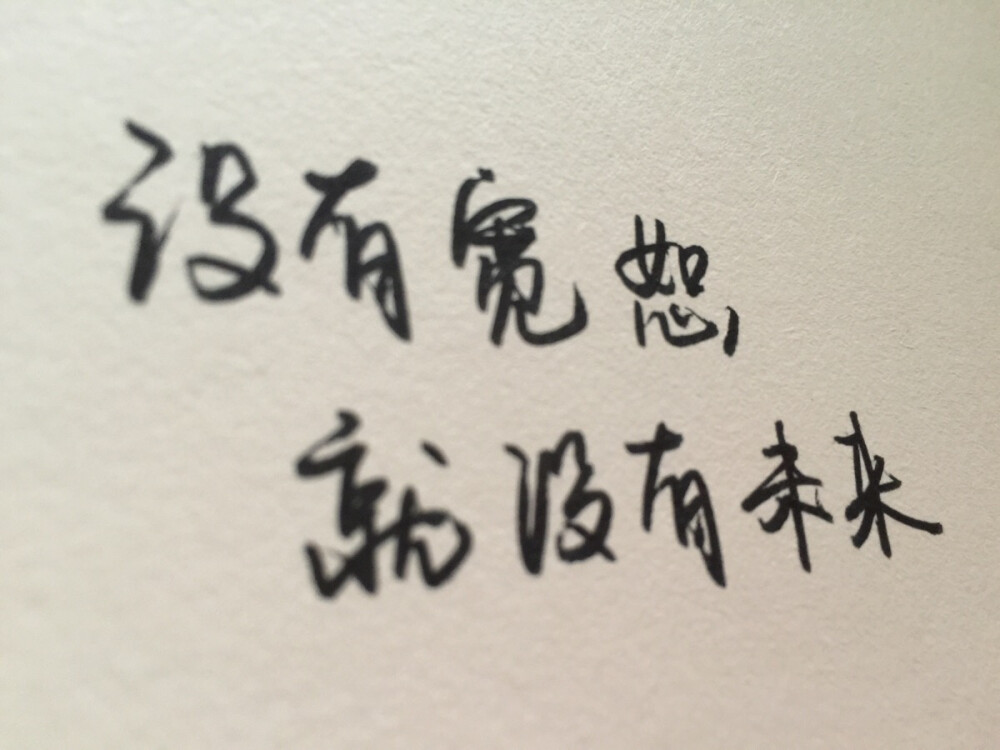 没有宽恕,
就没有未来